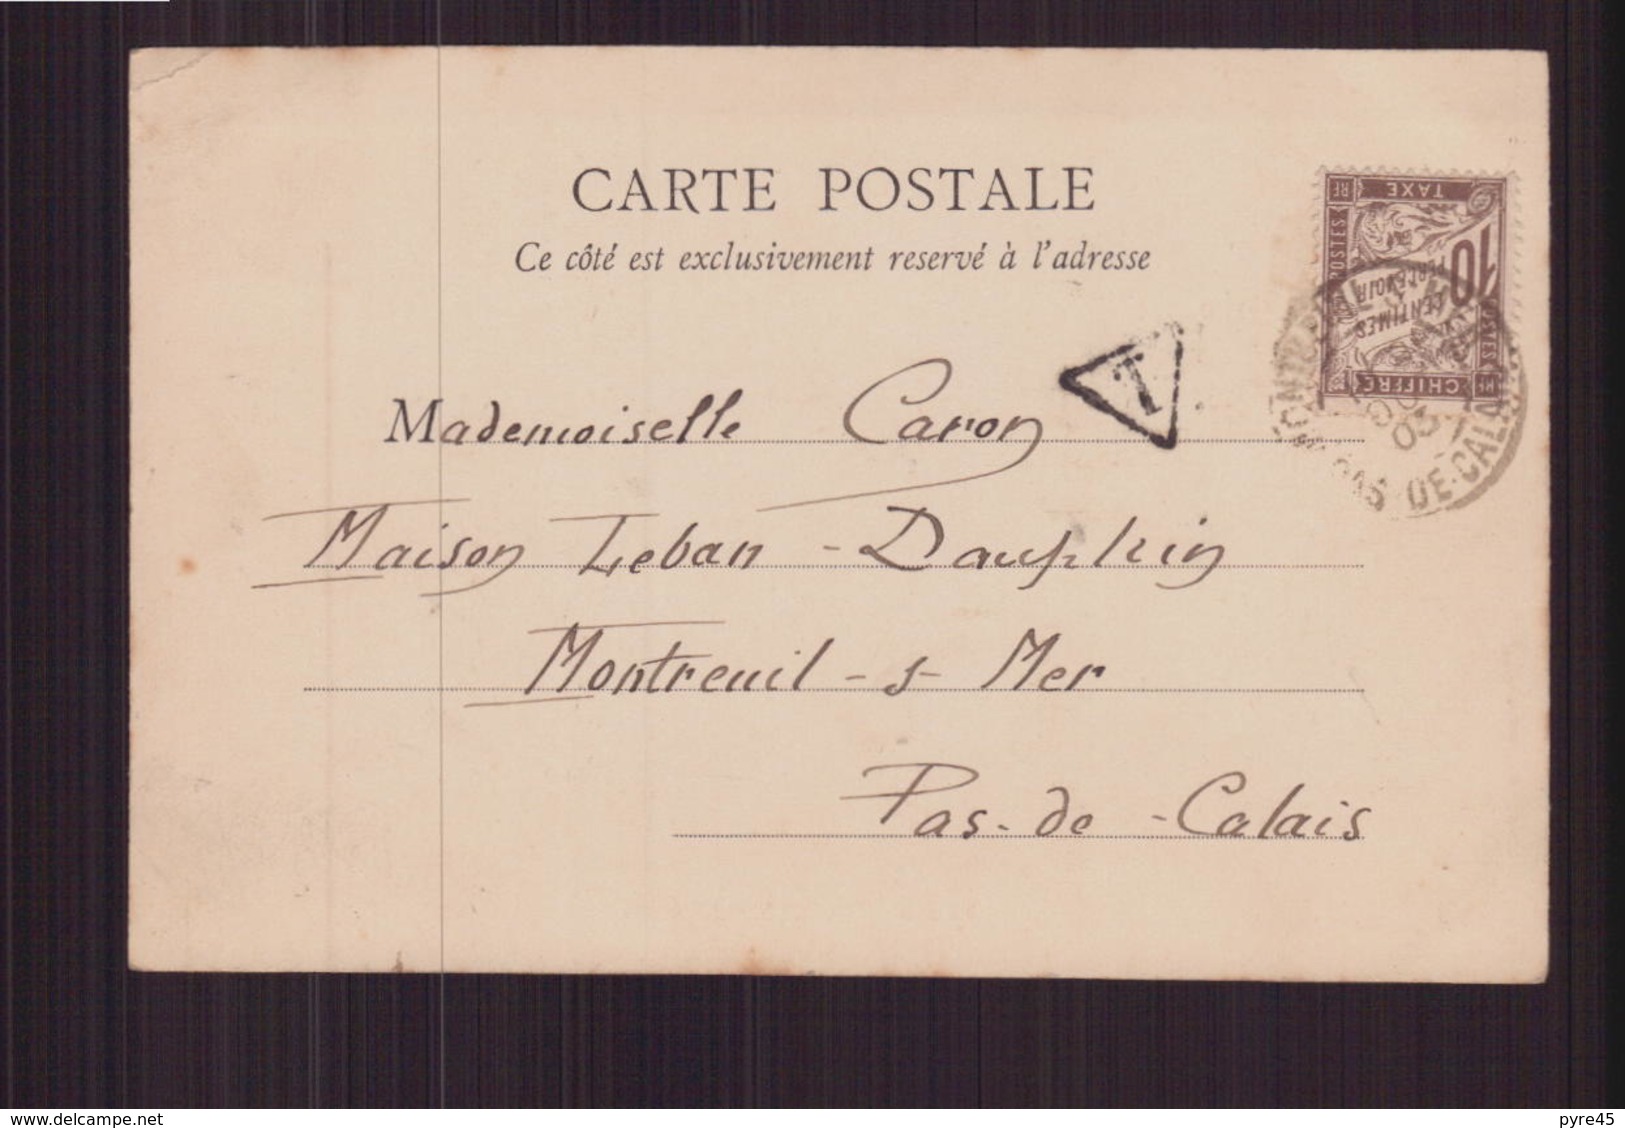 CARTE POSTALE
Ce côté est exclusivement reservé à l'adresse
TAXE
RF
POSTES
10
CENTIMES
A
PERCEVOIR
CHIFFRE
RF
T
03
PAS-DE-CALAIS
Mademoiselle Caron
Maison Leban - Dauphin
Montreuil - s - Mer
Pas-de-Calais
www.delcampe.net
pyre45